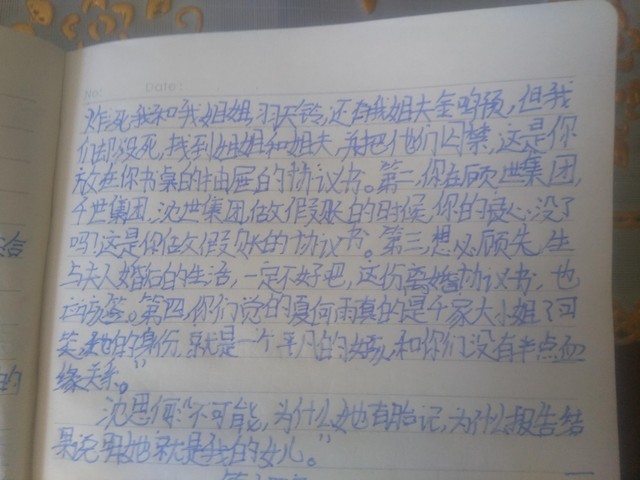 No:
Date:
炸死我和我姐姐,羽天铃,还有我姐夫金鸣预,但我
们都没死,找到姐姐和姐夫,并把他们囚禁,这是你
放在你书桌的抽屉的协议书。第二,你在顾世集团,
千世集团,沈世集团做假账的时候,你的良心没了
吗?这是你做假账的协议书。第三,想必顾先生
与夫人婚后的生活,一定不好吧,这份离婚协议书,也
该签。第四,你们觉的夏何雨真的是千家大小姐了可
笑,她的身份,就是一个平凡的女孩,和你们没有半点血
缘关系。”
沈思便:“不可能,为什么她有胎记,为什么报告结
果说明她就是我的女儿。”